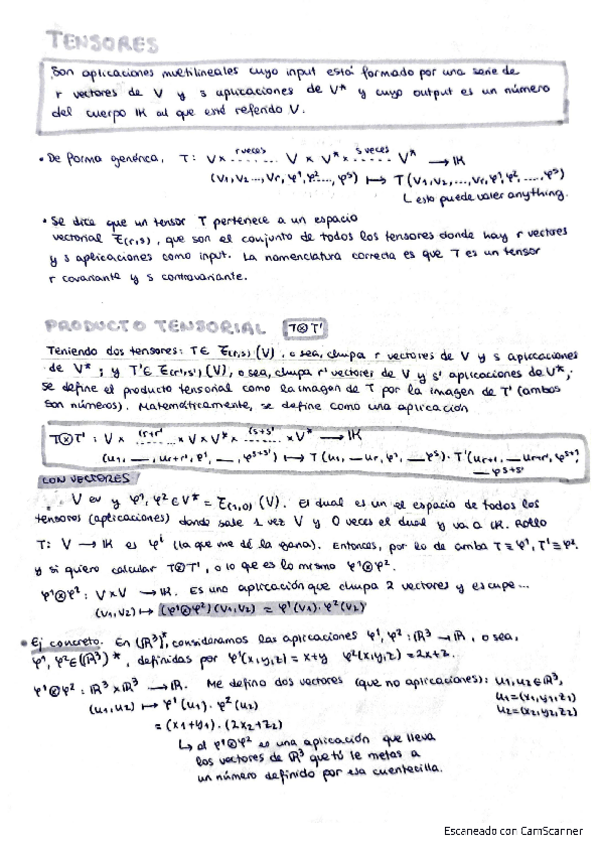 TENSORES
Son aplicaciones multilineales cuyo input está formado por una serie de
r vectores de V y s aplicaciones de V* y cuyo output es un número
del cuerpo IK al que esté referido V.
• De forma genérica, T: V × r veces V × V* × s veces V* → IK
(v₁, v₂ ..., vr, φ¹, φ² ..., φˢ) ↦ T(v₁, v₂, ..., vr, φ¹, φ², ..., φˢ)
↳ esto puede valer anything.
• Se dice que un tensor T pertenece a un espacio
vectorial ℾ(r,s), que son el conjunto de todos los tensores donde hay r vectores
y s aplicaciones como input. La nomenclatura correcta es que T es un tensor
r covariante y s contravariante.
PRODUCTO TENSORIAL T⊗T'
Teniendo dos tensores: T∈ ℾ(r,s) (V), o sea, chupa r vectores de V y s aplicaciones
de V*; y T'∈ ℾ(r',s') (V), o sea, chupa r' vectores de V y s' aplicaciones de V*;
se define el producto tensorial como la imagen de T por la imagen de T' (ambos
son números). Matemáticamente, se define como una aplicación
T⊗T' : V × (r+r') × V × V* × (s+s') × V* → IK
(u₁, __, ur+r', φ¹, __, φˢ⁺ˢ') ↦ T(u₁, __ ur, φ¹, __ φˢ) · T'(ur+1, __ ur+r', φˢ⁺¹,
__ φˢ⁺ˢ'
CON VECTORES
V ev y φ¹, φ² ∈ V* = ℾ(1,0) (V). El dual es un el espacio de todos los
tensores (aplicaciones) donde sale 1 vez V y 0 veces el dual y va a IK. Rollo
T: V → IK es φⁱ (la que me dé la gana). Entonces, por lo de arriba T ≡ φ¹, T' ≡ φ².
y si quiero calcular T⊗T', o lo que es lo mismo φ¹⊗φ².
φ¹⊗φ² : V×V → IK. Es una aplicación que chupa 2 vectores y escupe...
(v₁, v₂) ↦ (φ¹⊗φ²)(v₁, v₂) = φ¹(v₁) · φ²(v₂)
• Ej concreto. En (ℝ³)*, consideramos las aplicaciones φ¹, φ² : ℝ³ → ℝ, o sea,
φ¹, φ² ∈ (ℝ³)*, definidas por φ¹(x,y,z) = x+y φ²(x,y,z) = 2x+z.
φ¹⊗φ² : ℝ³ × ℝ³ → ℝ. Me defino dos vectores (que no aplicaciones): u₁, u₂ ∈ ℝ³,
(u₁, u₂) ↦ φ¹(u₁) · φ²(u₂) u₁ = (x₁, y₁, z₁)
= (x₁+y₁) · (2x₂+z₂) u₂ = (x₂, y₂, z₂)
↳ el φ¹⊗φ² es una aplicación que lleva
los vectores de ℝ³ que tú le metas a
un número definido por esa cuentecilla.
Escaneado con CamScanner